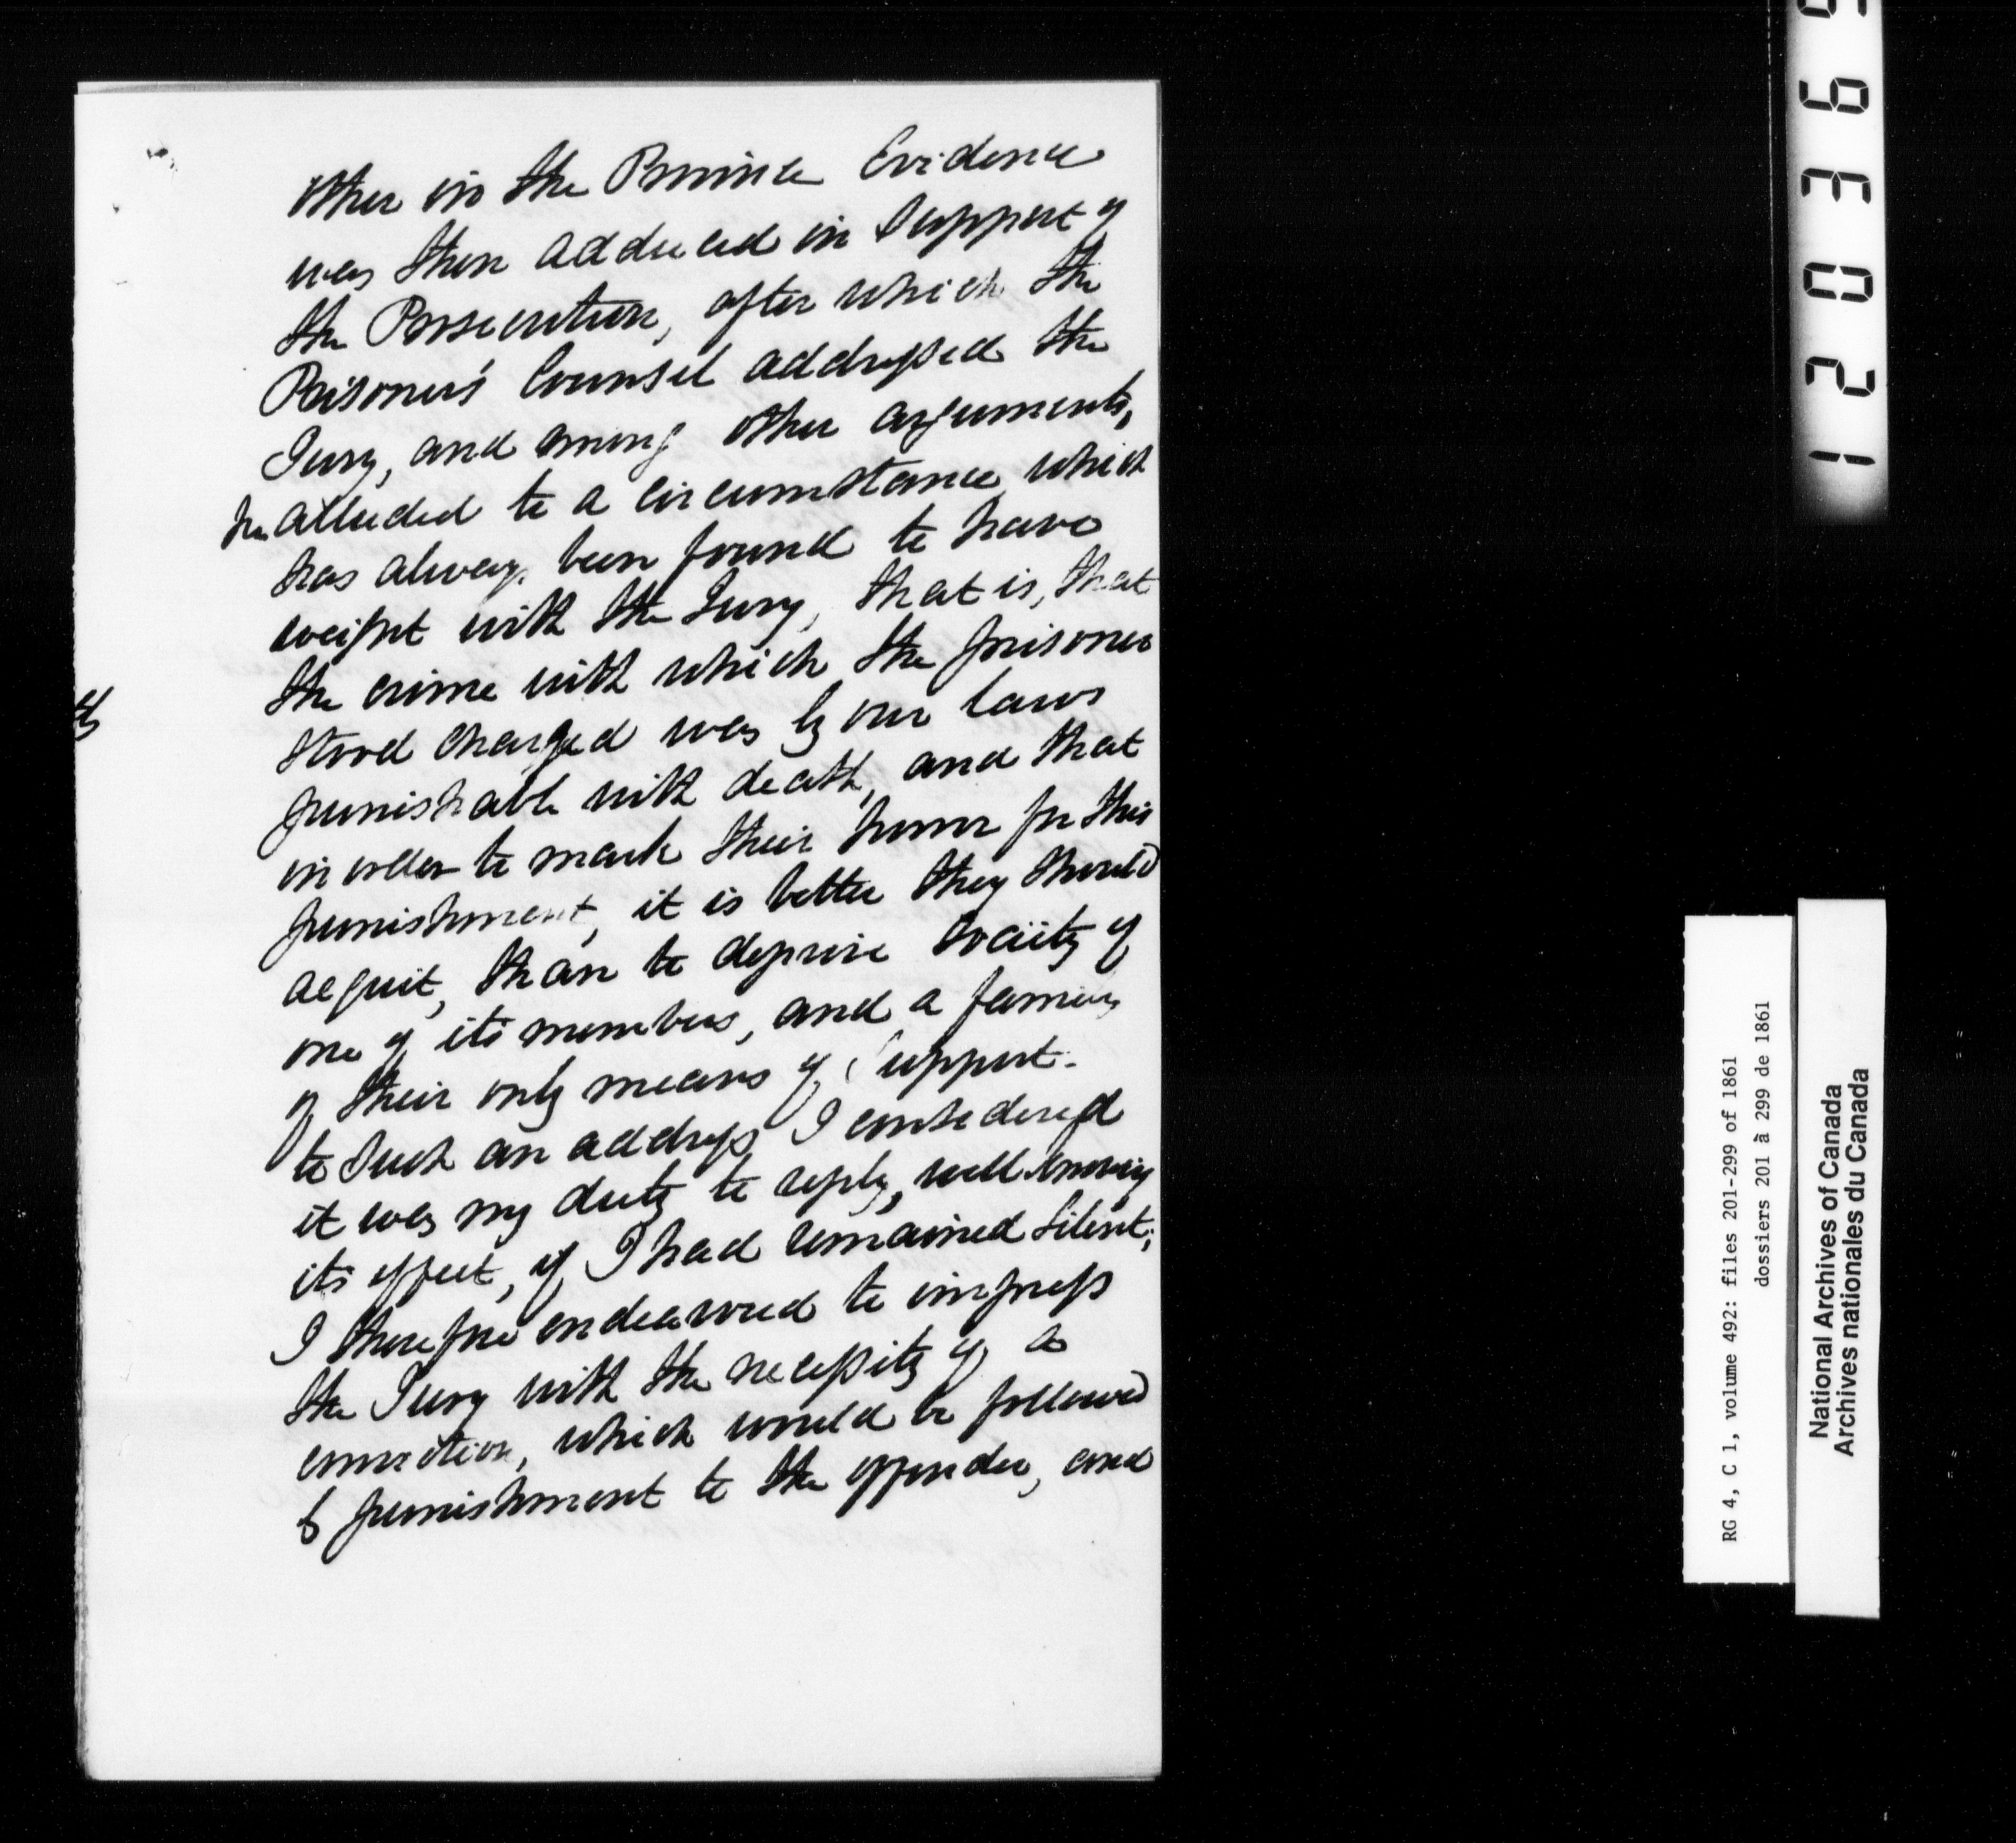 other in the Province Evidence
was then adduced in Support of
the Prosecution, after which the
Prisoner's Counsel addressed the
Jury, and among other arguments,
he alluded to a circumstance which
has always been found to have
weight with the Jury, that is, that
the crime with which the prisoner
stood charged was by our laws
punishable with death, and that
in order to mark their horror for this
punishment, it is better they should
acquit, than to deprive Society of
one of its members, and a family
of their only means of Support.
to Such an address I considered
it was my duty to reply, well knowing
its effect, if I had remained Silent;
I therefore endeavored to impress
the Jury with the necessity of a
conviction, which would be followed
by punishment to the offender, and
120369
RG 4, C 1, volume 492: files 201-299 of 1861
dossiers 201 à 299 de 1861
National Archives of Canada
Archives nationales du Canada